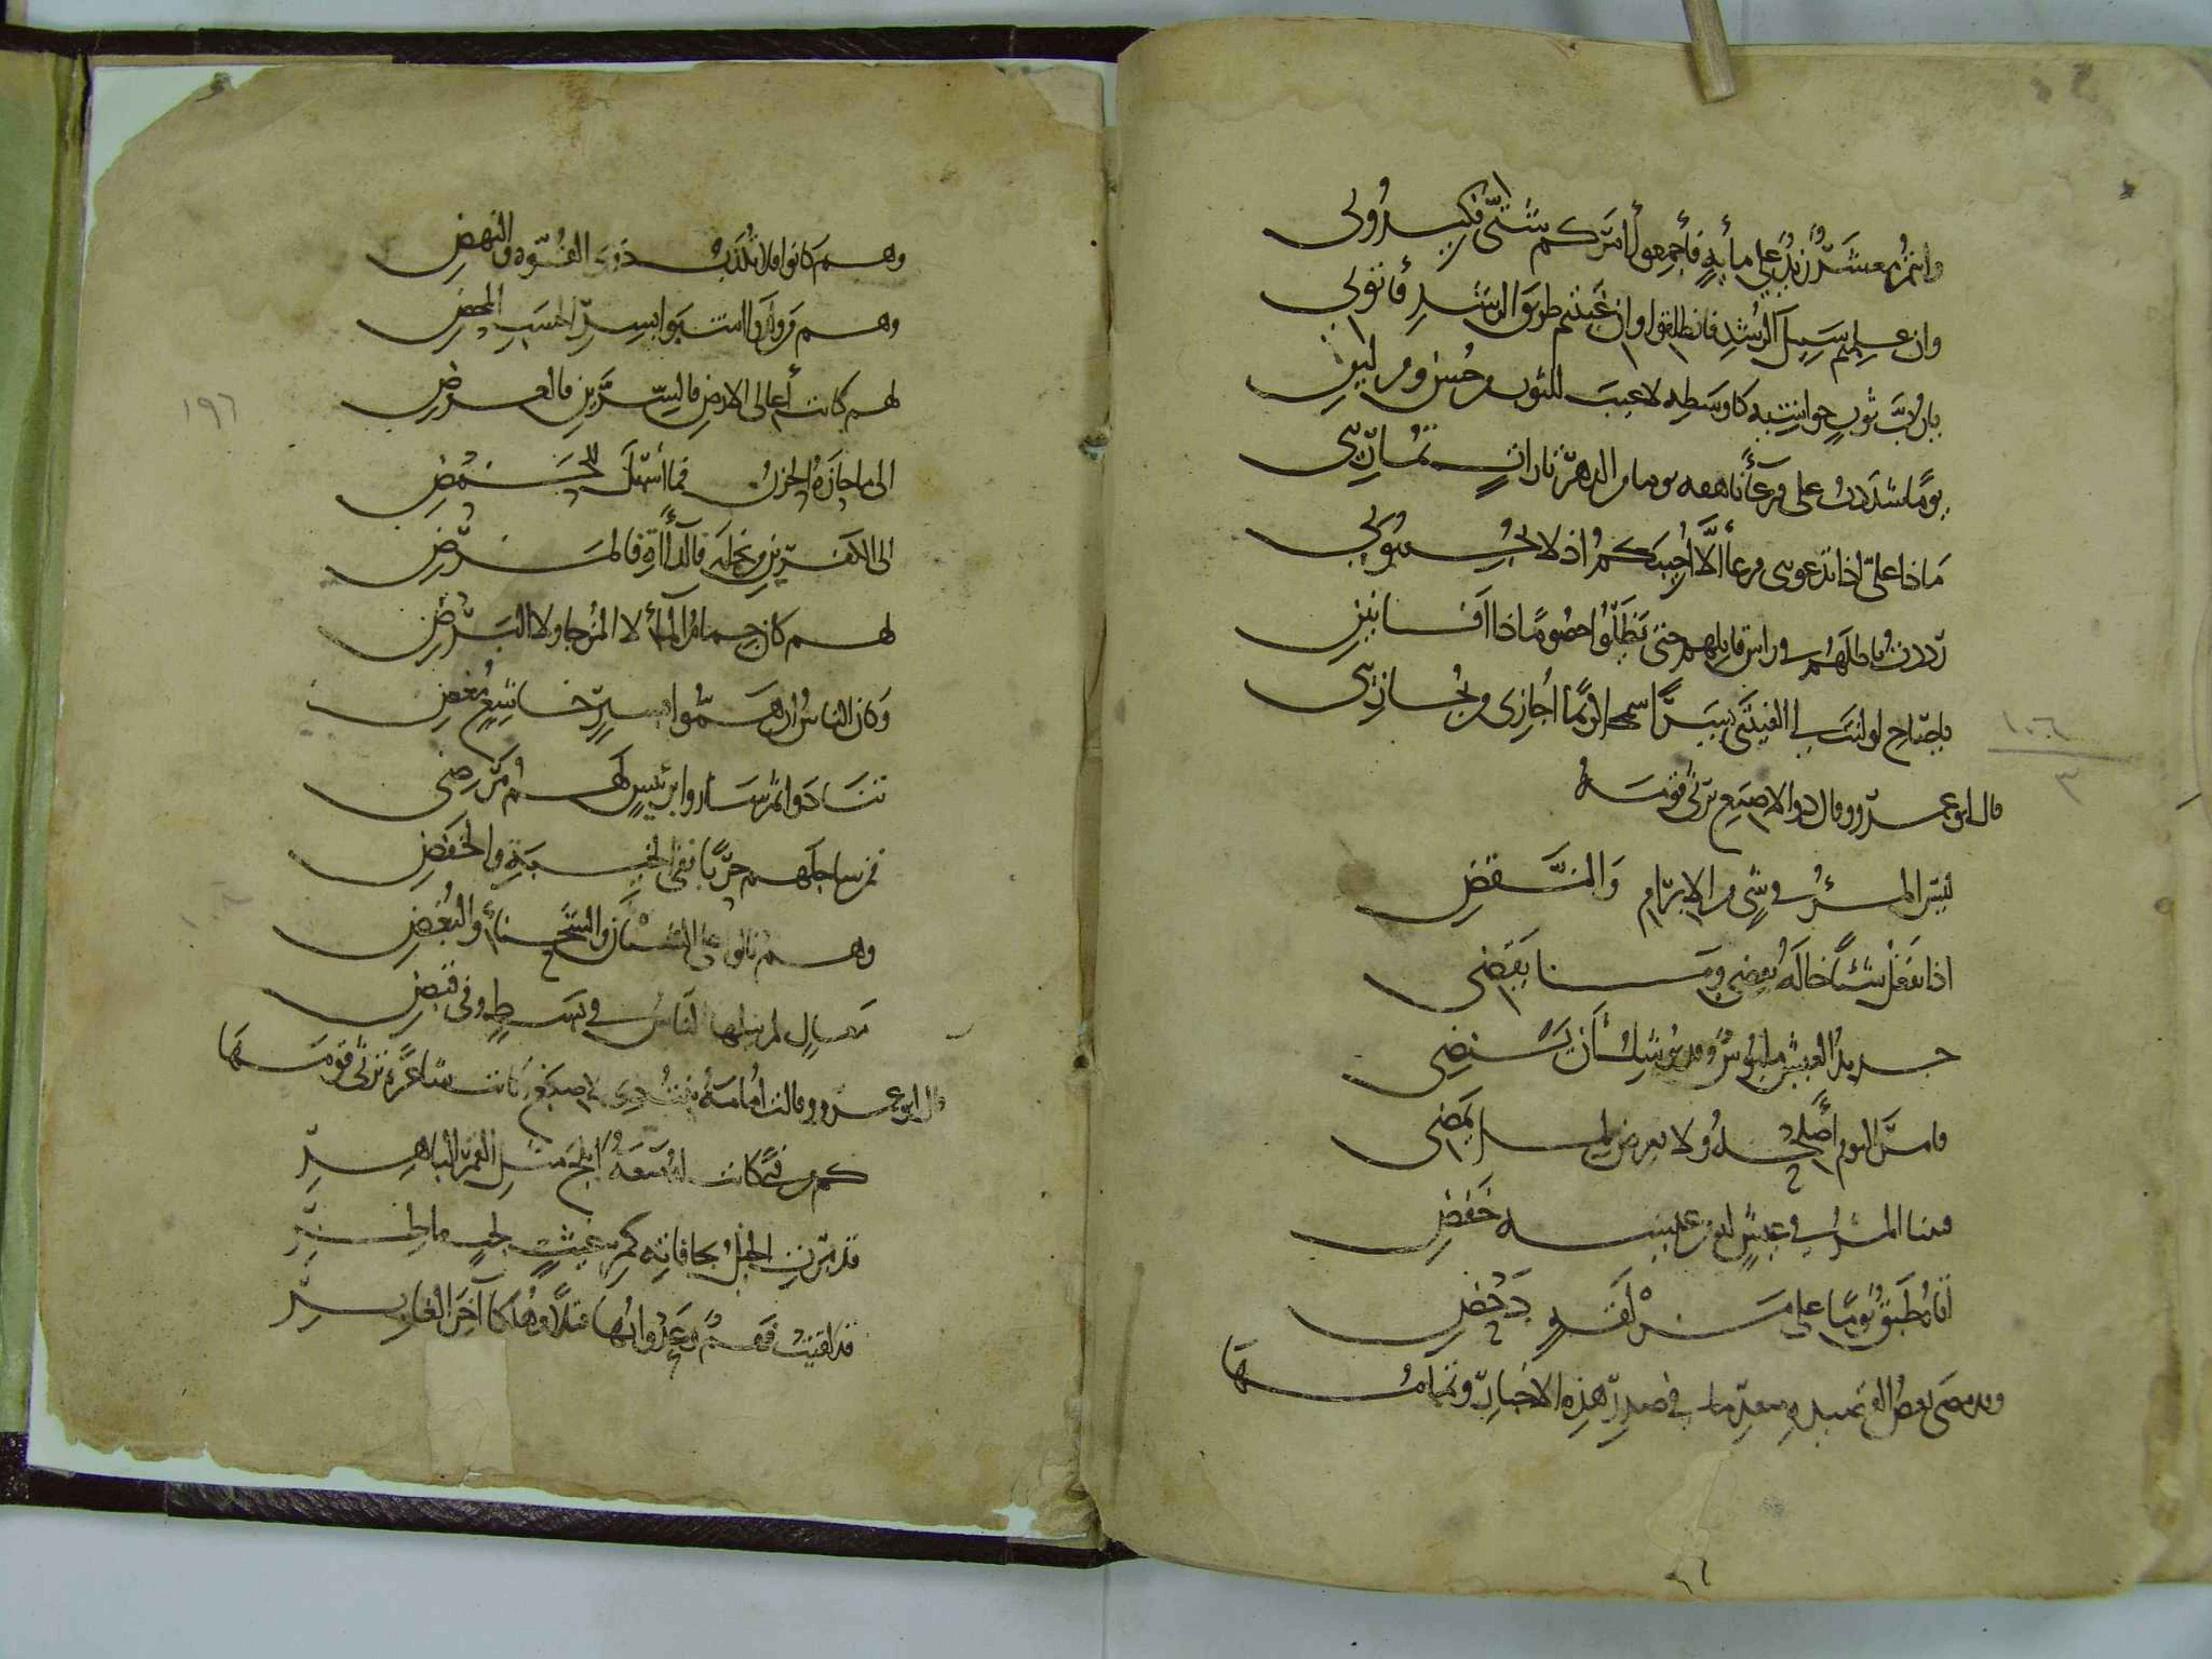 وانتم معشر زيد على مأية فأجمعوا أمركم شتى فكيدوني
وان علمتم سبيل الرشد فانطلقوا وان غبيتم طريق الرشد فأتوني
يا رب ثوب حواشيه كاوسطه لا عيب للثوب من حسن ومن لين
يوما شددت على فرعاء فاهقه يوما من الدهر تارات تماريني
ماذا علي اذا تدعونني فزعا ألا أجيبكم اذ لا تحبوني
رددت باطلهم في راس قايلهم حتى يظلوا خصوما ذا افانين
يا صاح لو لنت لي الفيتني يسرا سمحا كريما أجازي من يجازيني
قال ابو عمرو وقال ذو الاصبع يرثي قومه
ليس المرء في شي من الابرام والنقض
اذا يفعل شيئا خاله يقضي وما يقضي
جديد العيش ملبوس وقد يوشك أن ينضي
فامر اليوم أصلحه ولا تعرض لما يمضي
فبينا المرء في عيش له من عيشه خفض
اتاه طبق يوما على مزلقة دحض
وقد مضى بعض القصيده متقدما في صدر هذه الاخبار وتمامها
وهم كانوا فلا تكذب ذوي القوة والنهض
وهم من ولدوا اشبوا بسر الحسب المحض
لهم كانت أعالي الارض فالسران فالعرض
الى ما حازه الحزن فما أسهل للحمض
الى الكفرين من نخلة فالدأأة فالمرض
لهم كان جمام الماء لا المزجا ولا البرض
وكان الناس ان هموا بيسر خاشع مغض
تنادوا ثم ساروا برئيس لهم مرضي
فمن ساجلهم حربا ففي الخيبة والخفض
وهم نالوا على الشنان والشحناء والبغض
معال لم ينلها الناس في بسط وفي قبض
قال ابو عمرو وقالت أمامة بنت ذي الاصبع وكانت شاعرة ترثي قومها
كم من فتى كانت له ميعة أبلج مثل القمر الباهر
قد مرت الخيل بحافاته كمر غيث لجب ماطر
قد لقيت فهم وعدوانها قتلا وهلكا آخر الغابر
١٩٦
١٠٦
٣